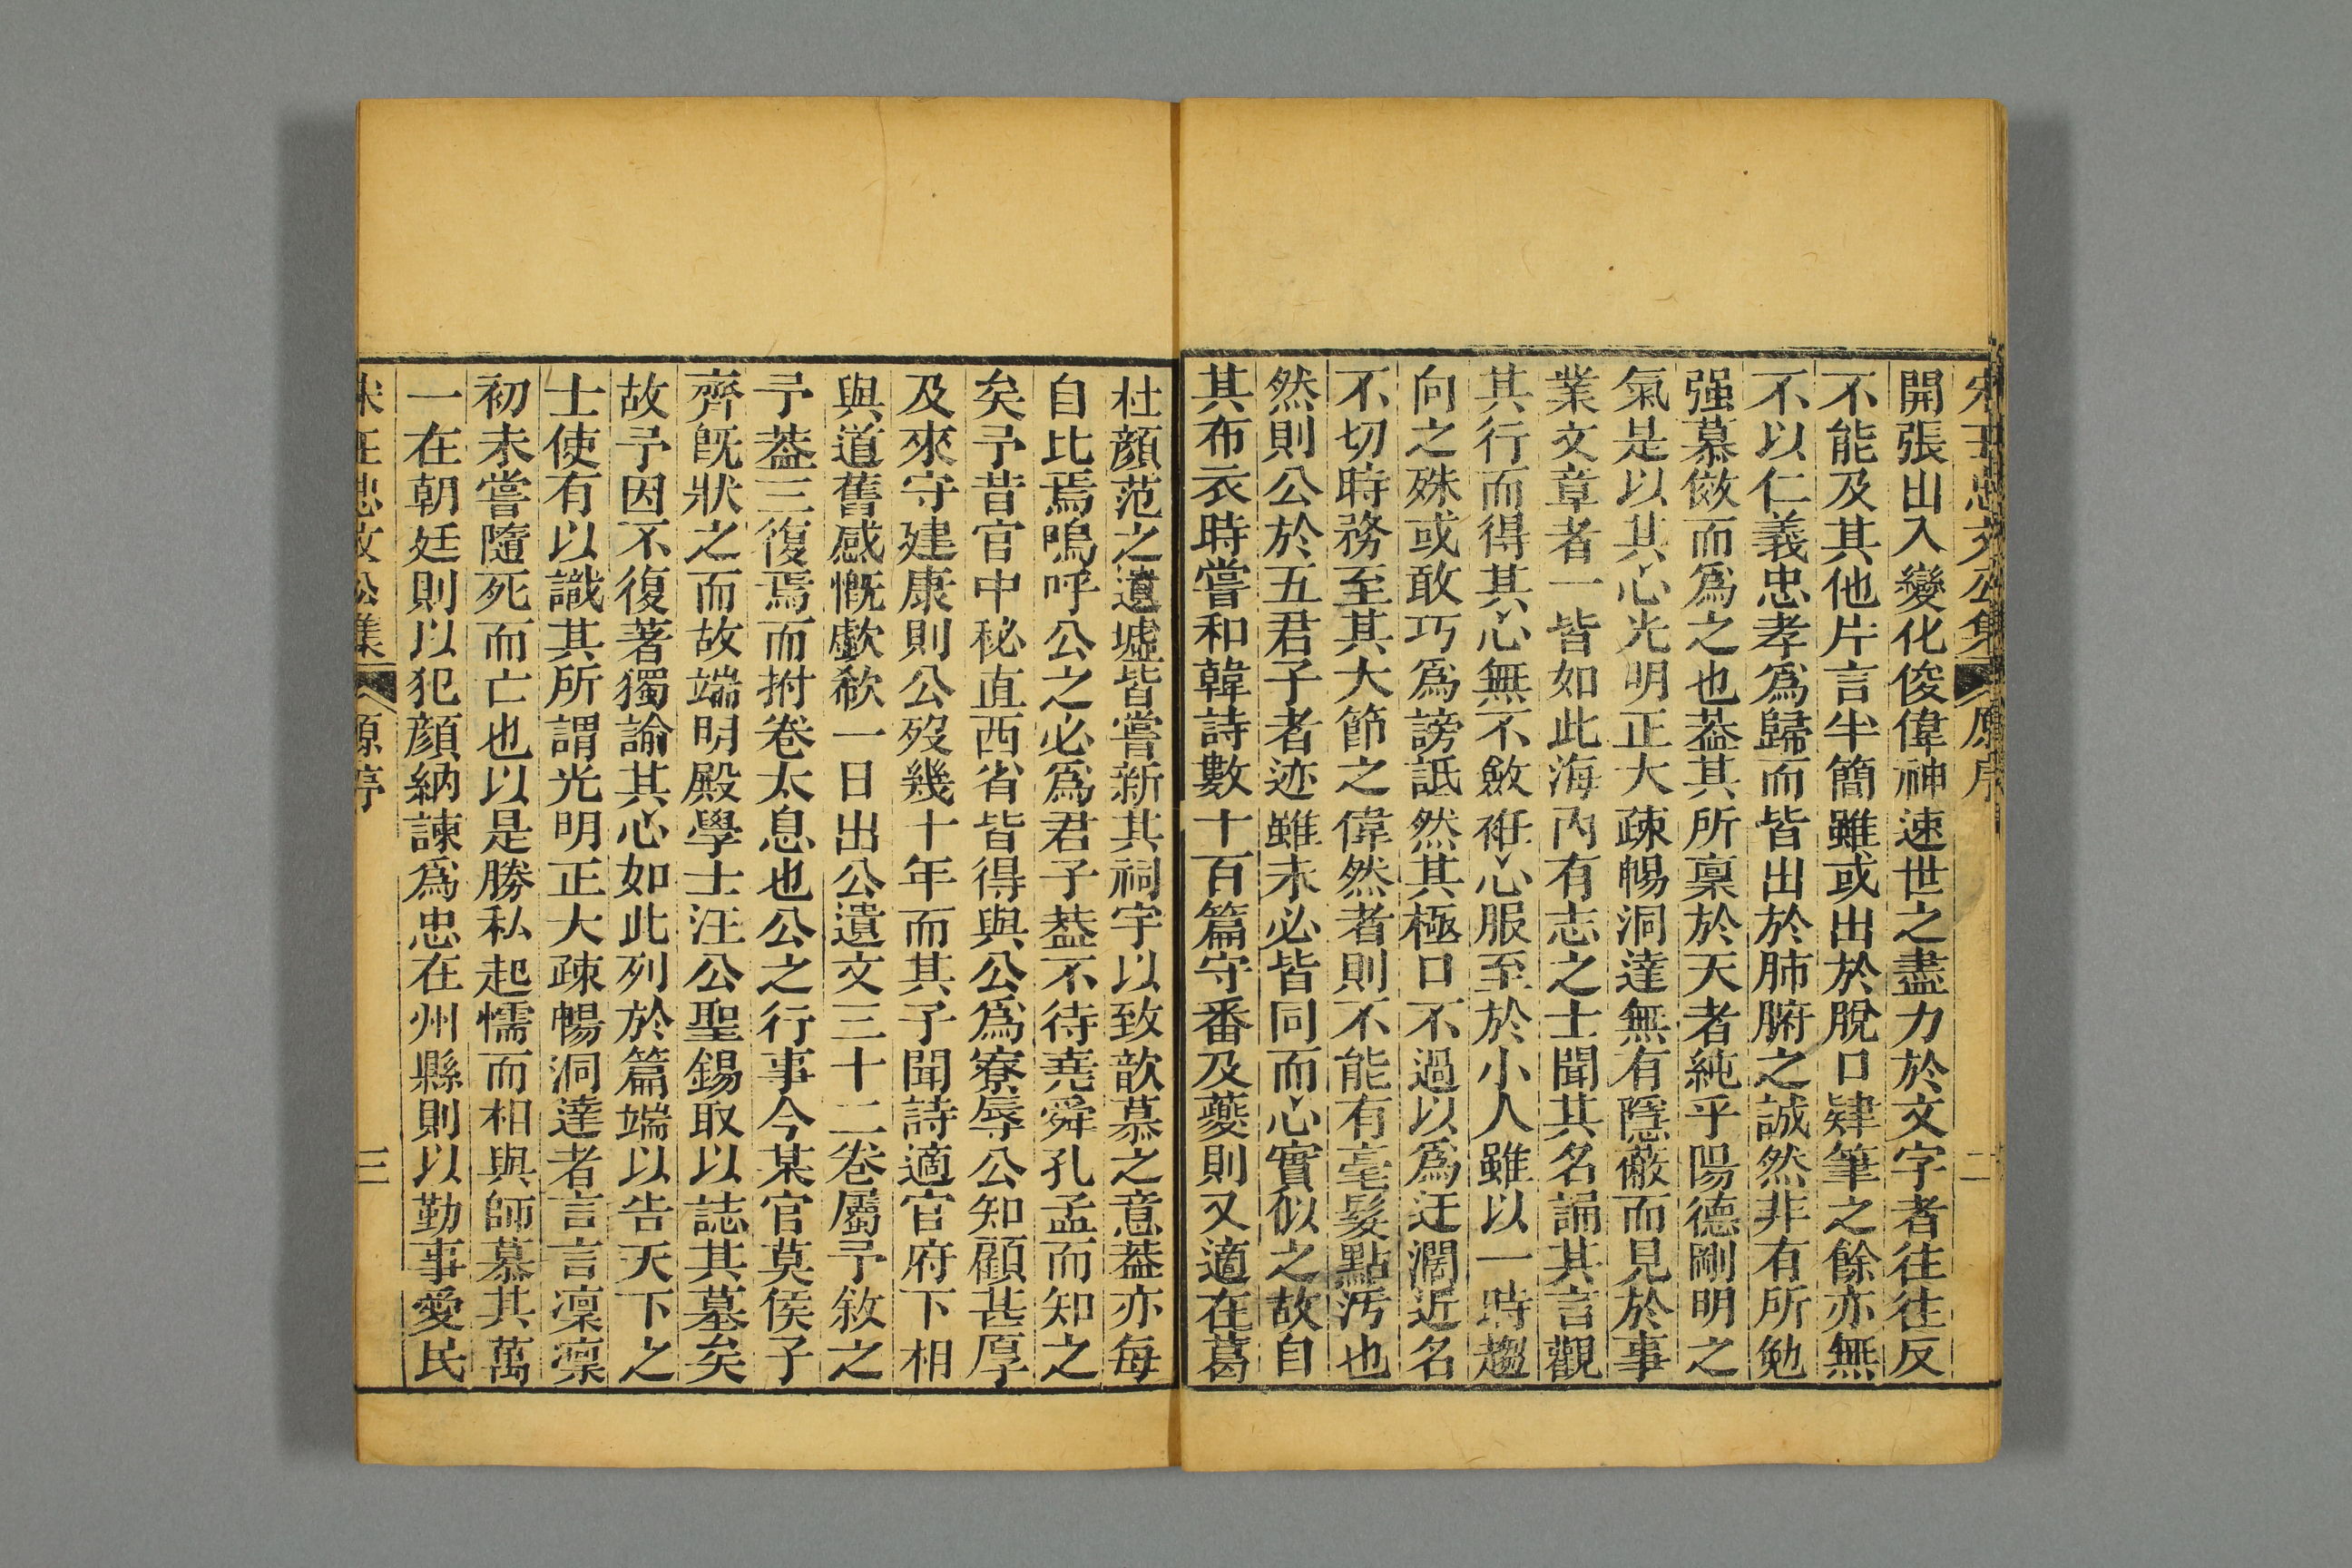 宋王忠文公集 原序 二
開張出入變化俊偉神速世之盡力於文字者往往反
不能及其他片言半簡雖或出於脫口肄筆之餘亦無
不以仁義忠孝爲歸而皆出於肺腑之誠然非有所勉
强慕倣而爲之也葢其所稟於天者純乎陽德剛明之
氣是以其心光明正大疎暢洞達無有隱蔽而見於事
業文章者一皆如此海內有志之士聞其名誦其言觀
其行而得其心無不斂袵心服至於小人雖以一時趨
向之殊或敢巧爲謗詆然其極口不過以爲迂濶近名
不切時務至其大節之偉然者則不能有毫髮點汚也
然則公於五君子者迹雖未必皆同而心實似之故自
其布衣時嘗和韓詩數十百篇守番及夔則又適在葛
杜顔范之遺墟皆嘗新其祠宇以致歆慕之意葢亦每
自比焉嗚呼公之必爲君子葢不待堯舜孔孟而知之
矣予昔官中秘直西省皆得與公爲寮辱公知顧甚厚
及來守建康則公歿幾十年而其子聞詩適官府下相
與道舊感慨歔欷一日出公遺文三十二卷屬予敘之
予葢三復焉而拊卷太息也公之行事今某官莫侯子
齊旣狀之而故端明殿學士汪公聖錫取以誌其墓矣
故予因不復著獨論其心如此列於篇端以告天下之
士使有以識其所謂光明正大疎暢洞達者言言凜凜
初未嘗隨死而亡也以是勝私起懦而相與師慕其萬
一在朝廷則以犯顔納諫爲忠在州縣則以勤事愛民
宋王忠文公集 原序 三